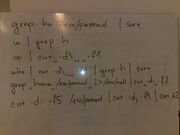 grep ho /etc/passwd | sort
w | grep h
w | cut -d\ -f1
who | cut -d\ | grep h | sort
grep home /etc/passwd 2>/dev/null | cut -d: -f2
cut -d: -f5 /etc/passwd | cut -d, -f1 | sort